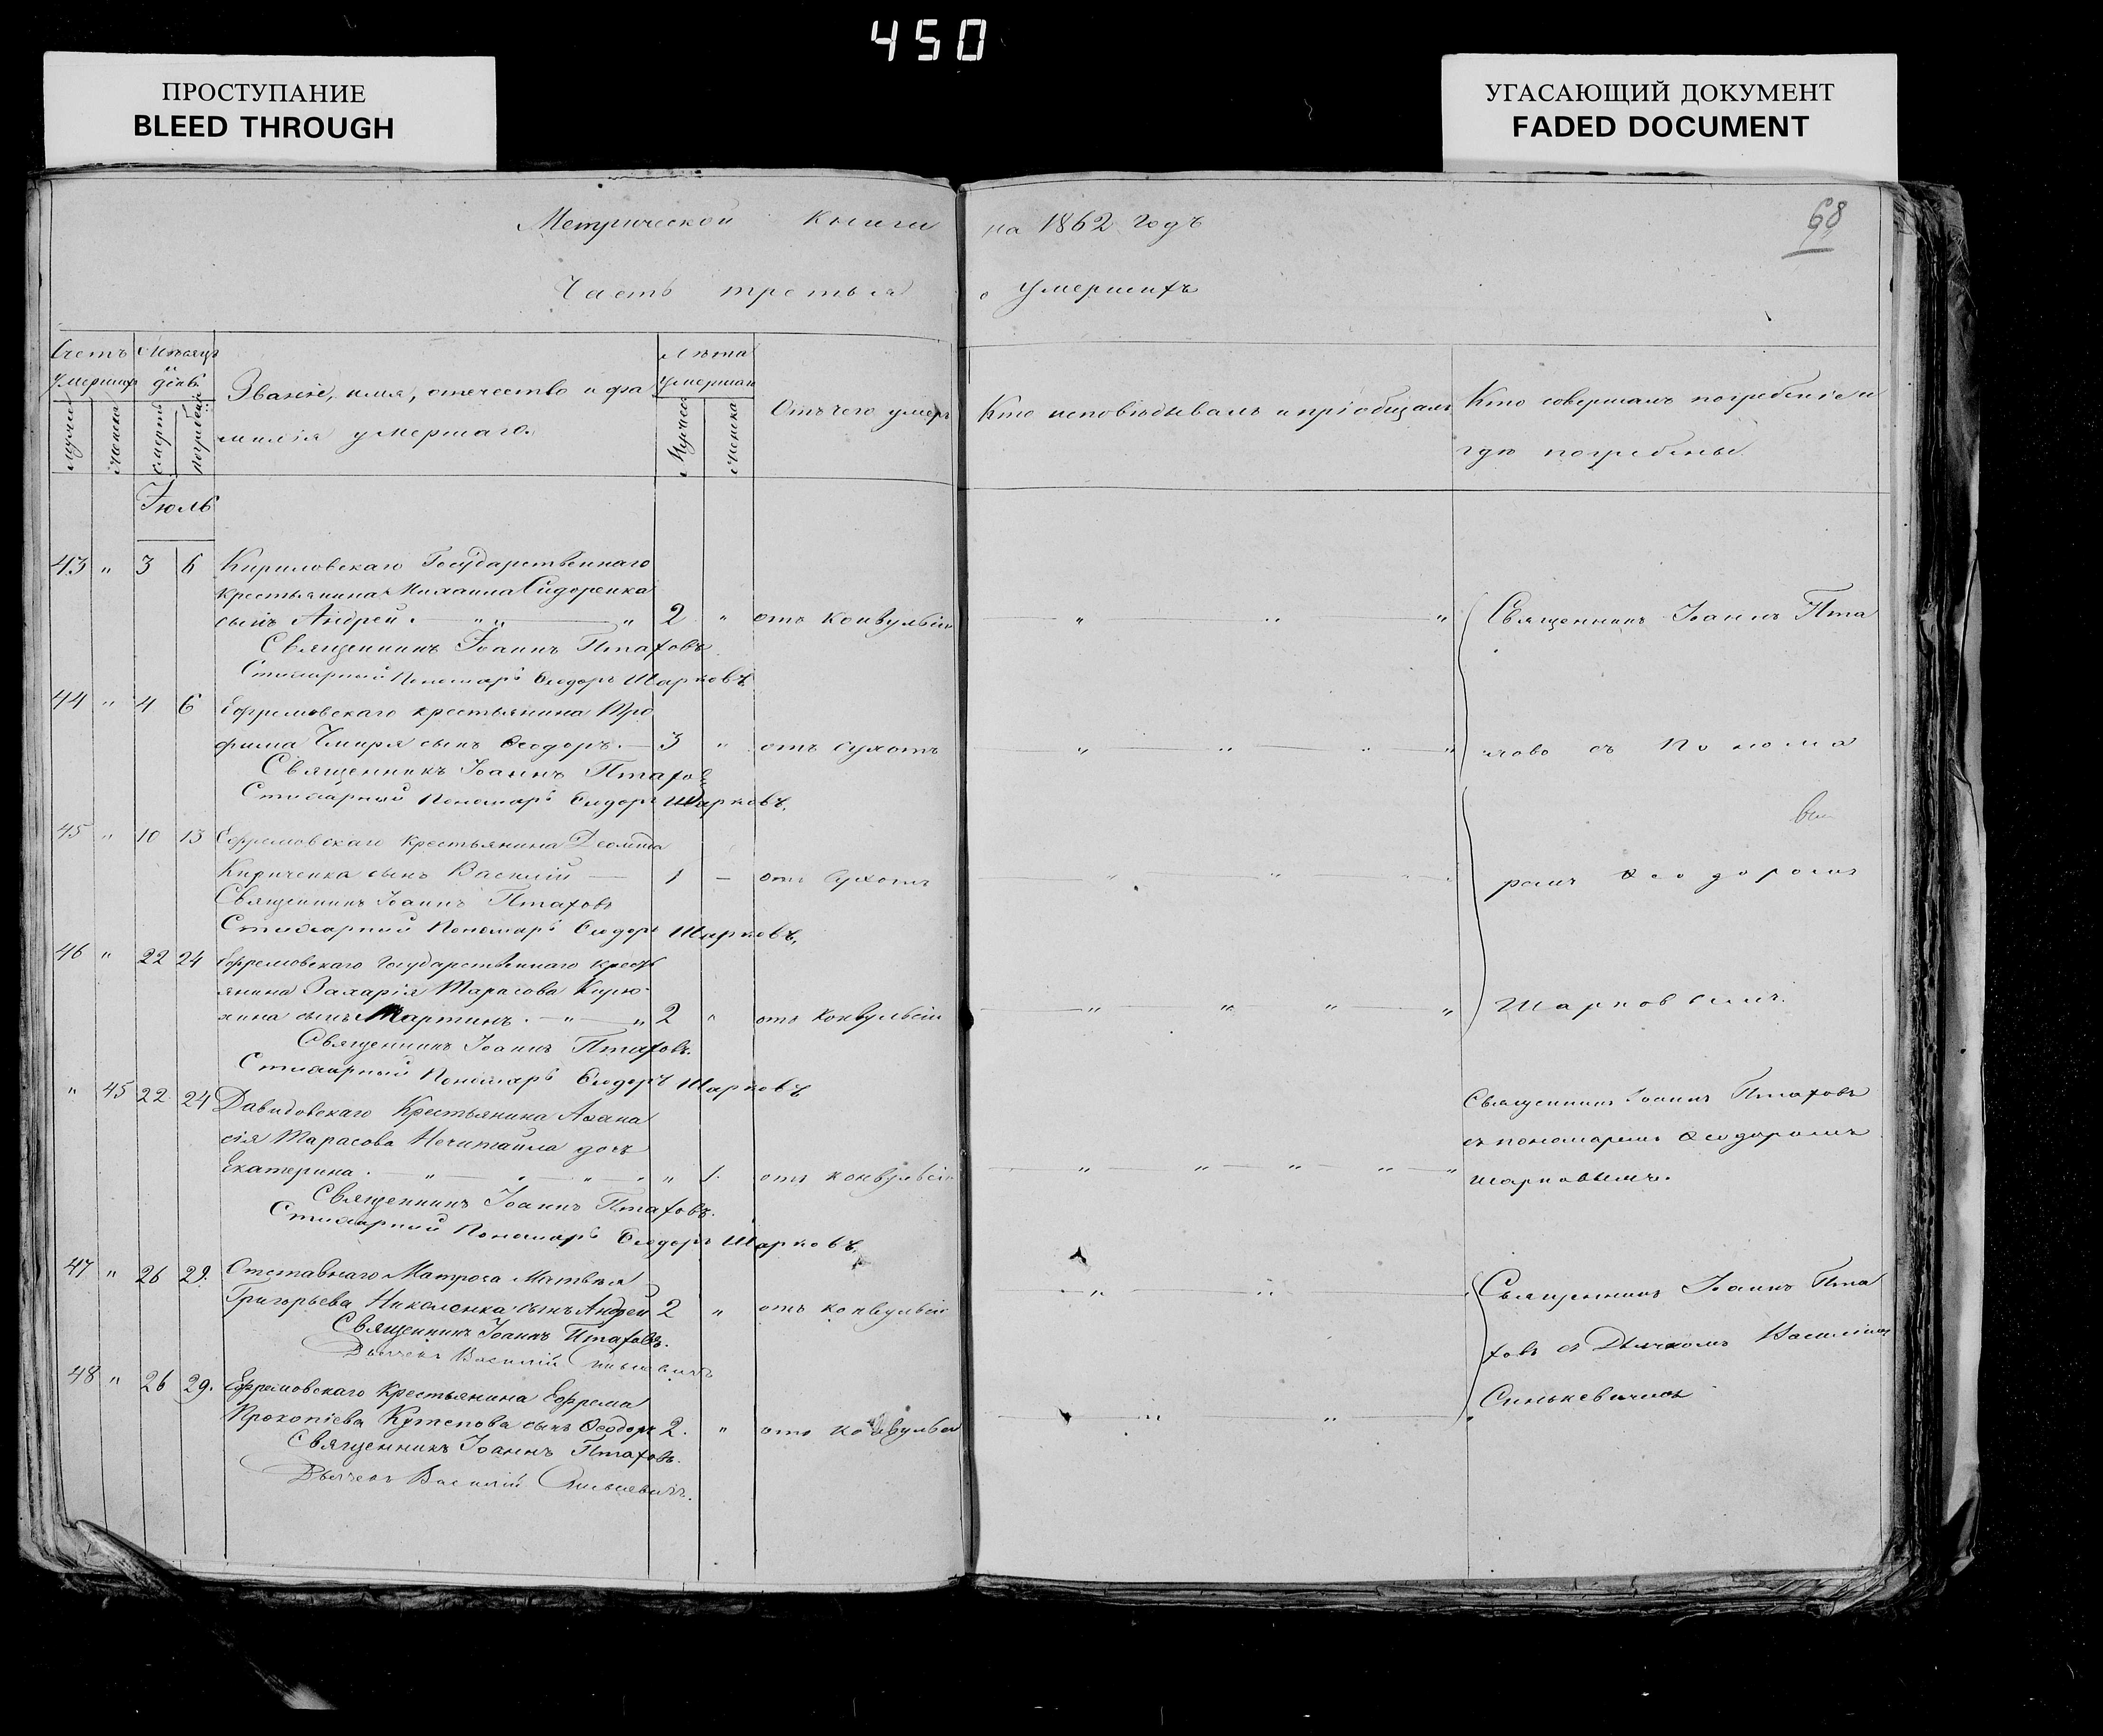 450
ПРОСТУПАНИЕ
BLEED THROUGH
УГАСАЮЩИЙ ДОКУМЕНТ
FADED DOCUMENT
68
Метрической книги на 1862 годъ
Часть третья о умершихъ
Счетъ умершихъ
Мѣсяцъ и день
Званіе, имя, отечество и фамилія умершаго.
Лѣта умершаго
Отъ чего умеръ
Кто исповѣдывалъ и пріобщалъ
Кто совершалъ погребеніе и
гдѣ погребены
Іюль
43 " 3 6 Кириловскаго Государственнаго
крестьянина Михаила Сидоренка
сынъ Андрей 2 " отъ конвульсіи
Священникъ Іоаннъ Птаховъ
Стихарный Пономарь Ѳеодоръ Шарковъ
44 " 4 6 Ефремовскаго крестьянина Тро
фима сынъ Ѳеодоръ. 3 " отъ сухотъ
Священникъ Іоаннъ Птаховъ
Стихарный Пономарь Ѳеодоръ Шарковъ.
45 " 10 13 Ефремовскаго крестьянина
Кириченка сынъ Василій 1 - отъ сухотъ
Священникъ Іоаннъ Птаховъ
Стихарный Пономарь Ѳеодоръ Шарковъ.
46 " 22 24 Ефремовскаго Государственнаго крест
янина Захарія Тарасова
сынъ Мартинъ. 2 " отъ конвульсіи
Священникъ Іоаннъ Птаховъ.
Стихарный Пономарь Ѳеодоръ Шарковъ
Священникъ Іоаннъ Пта
ховъ съ Понома
ремъ Ѳеодоромъ
Шарковымъ.
" 45 22 24 Давидовскаго Крестьянина Аѳана
сія Тарасова Нечитайла дочь
Екатерина. " 1. отъ конвульсіи
Священникъ Іоаннъ Птаховъ.
Стихарный Пономарь Ѳеодоръ Шарковъ.
Священникъ Іоаннъ Птаховъ
съ пономаремъ Ѳеодоромъ
Шарковымъ.
47 " 26 29. Отставнаго Матроса Матвѣя
Григорьева Николенка сынъ Андрей 2 " отъ конвульсіи
Священникъ Іоаннъ Птаховъ.
Дьячекъ Василій Синькевичъ
48 " 26 29. Ефремовскаго Крестьянина Ефрема
Прокопіева Кутепова сынъ Ѳеодоръ 2. " отъ конвульсіи
Священникъ Іоаннъ Птаховъ.
Дьячекъ Василій Синькевичъ.
Священникъ Іоаннъ Пта
ховъ съ Дьячкомъ Василіемъ
Синькевичемъ